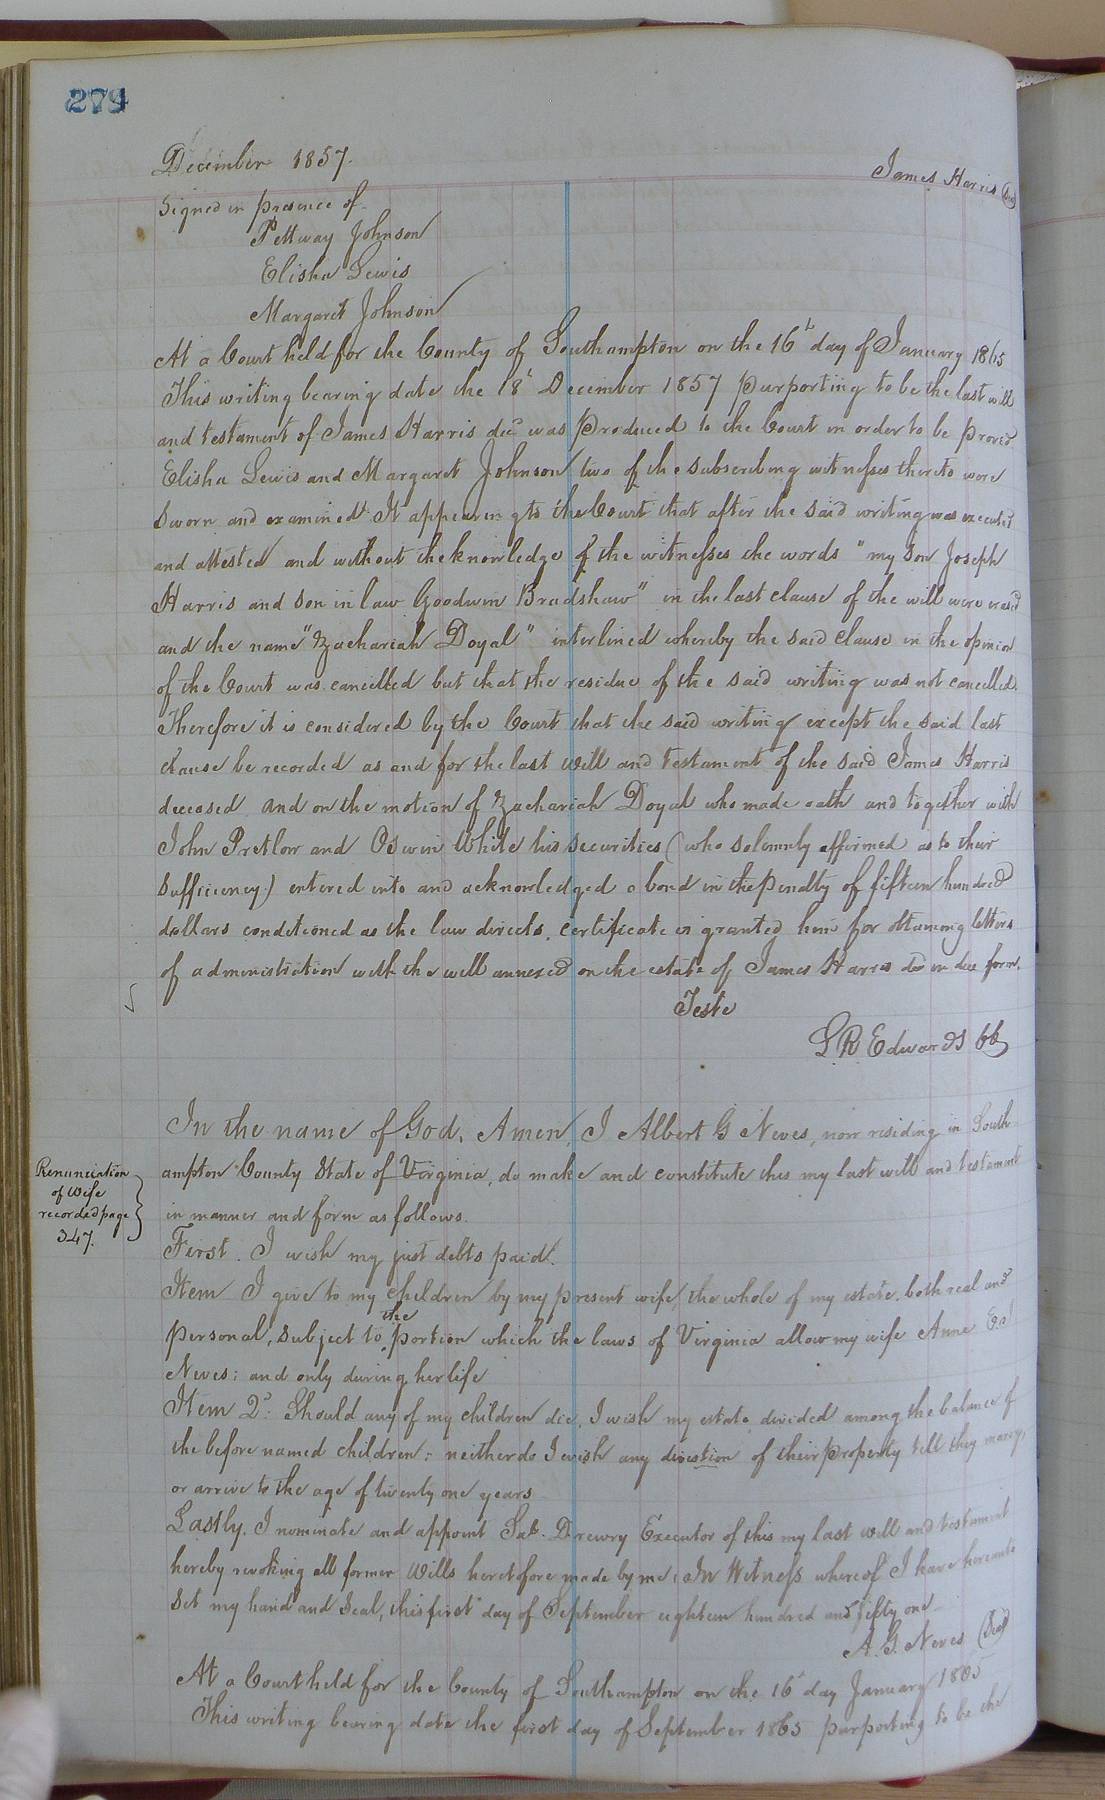 279
December 1857.
James Harris (Seal)
Signed in presence of
Pettway Johnson
Elisha Lewis
Margaret Johnson
At a Court held for the County of Southampton on the 16th day of January 1865
This writing bearing date the 18th December 1857 purporting to be the last will
and testament of James Harris decd was produced to the Court in order to be proved
Elisha Lewis and Margaret Johnson two of the subscribing witnesses thereto were
sworn and examined. It appearing to the Court that after the said writing was executed
and attested and without the knowledge of the witnesses the words "my son Joseph
Harris and son in law Goodwin Bradshaw" in the last clause of the will were erased
and the name "Zachariah Doyal" interlined whereby the said clause in the opinion
of the Court was cancelled but that the residue of the said writing was not cancelled.
Therefore it is considered by the Court that the said writing except the said last
clause be recorded as and for the last will and testament of the said James Harris
deceased. and on the motion of Zachariah Doyal who made oath and together with
John Pretlow and Oswin White his securities (who solemnly affirmed as to their
sufficiency) entered into and acknowledged a bond in the penalty of fifteen hundred
dollars conditioned as the law directs. certificate is granted him for obtaining letters
of administration with the will annexed on the estate of James Harris decd in due form.
Teste
L R Edwards CC
In the name of God, Amen, I Albert G Neves, now residing in South-
ampton County State of Virginia, do make and constitute this my last will and testament
Renunciation
of Wife
recorded page
347.
in manner and form as follows.
First. I wish my just debts paid.
Item I give to my children by my present wife, the whole of my estate. both real and
personal, subject to the portion which the laws of Virginia allow my wife Anne E.
Neves: and only during her life
Item 2d: Should any of my children die, I wish my estate divided among the balance of
the before named children: neither do I wish any division of their property till they marry,
or arrive to the age of twenty one years
Lastly. I nominate and appoint Saml. Drewry Executor of this my last will and testament
hereby revoking all former Wills heretofore made by me: In Witness whereof I have hereunto
set my hand and seal, this first day of September eighteen hundred and fifty one
A. G. Neves (Seal)
At a Court held for the County of Southampton on the 16th day January 1865
This writing bearing date the first day of September 1865 purporting to be the